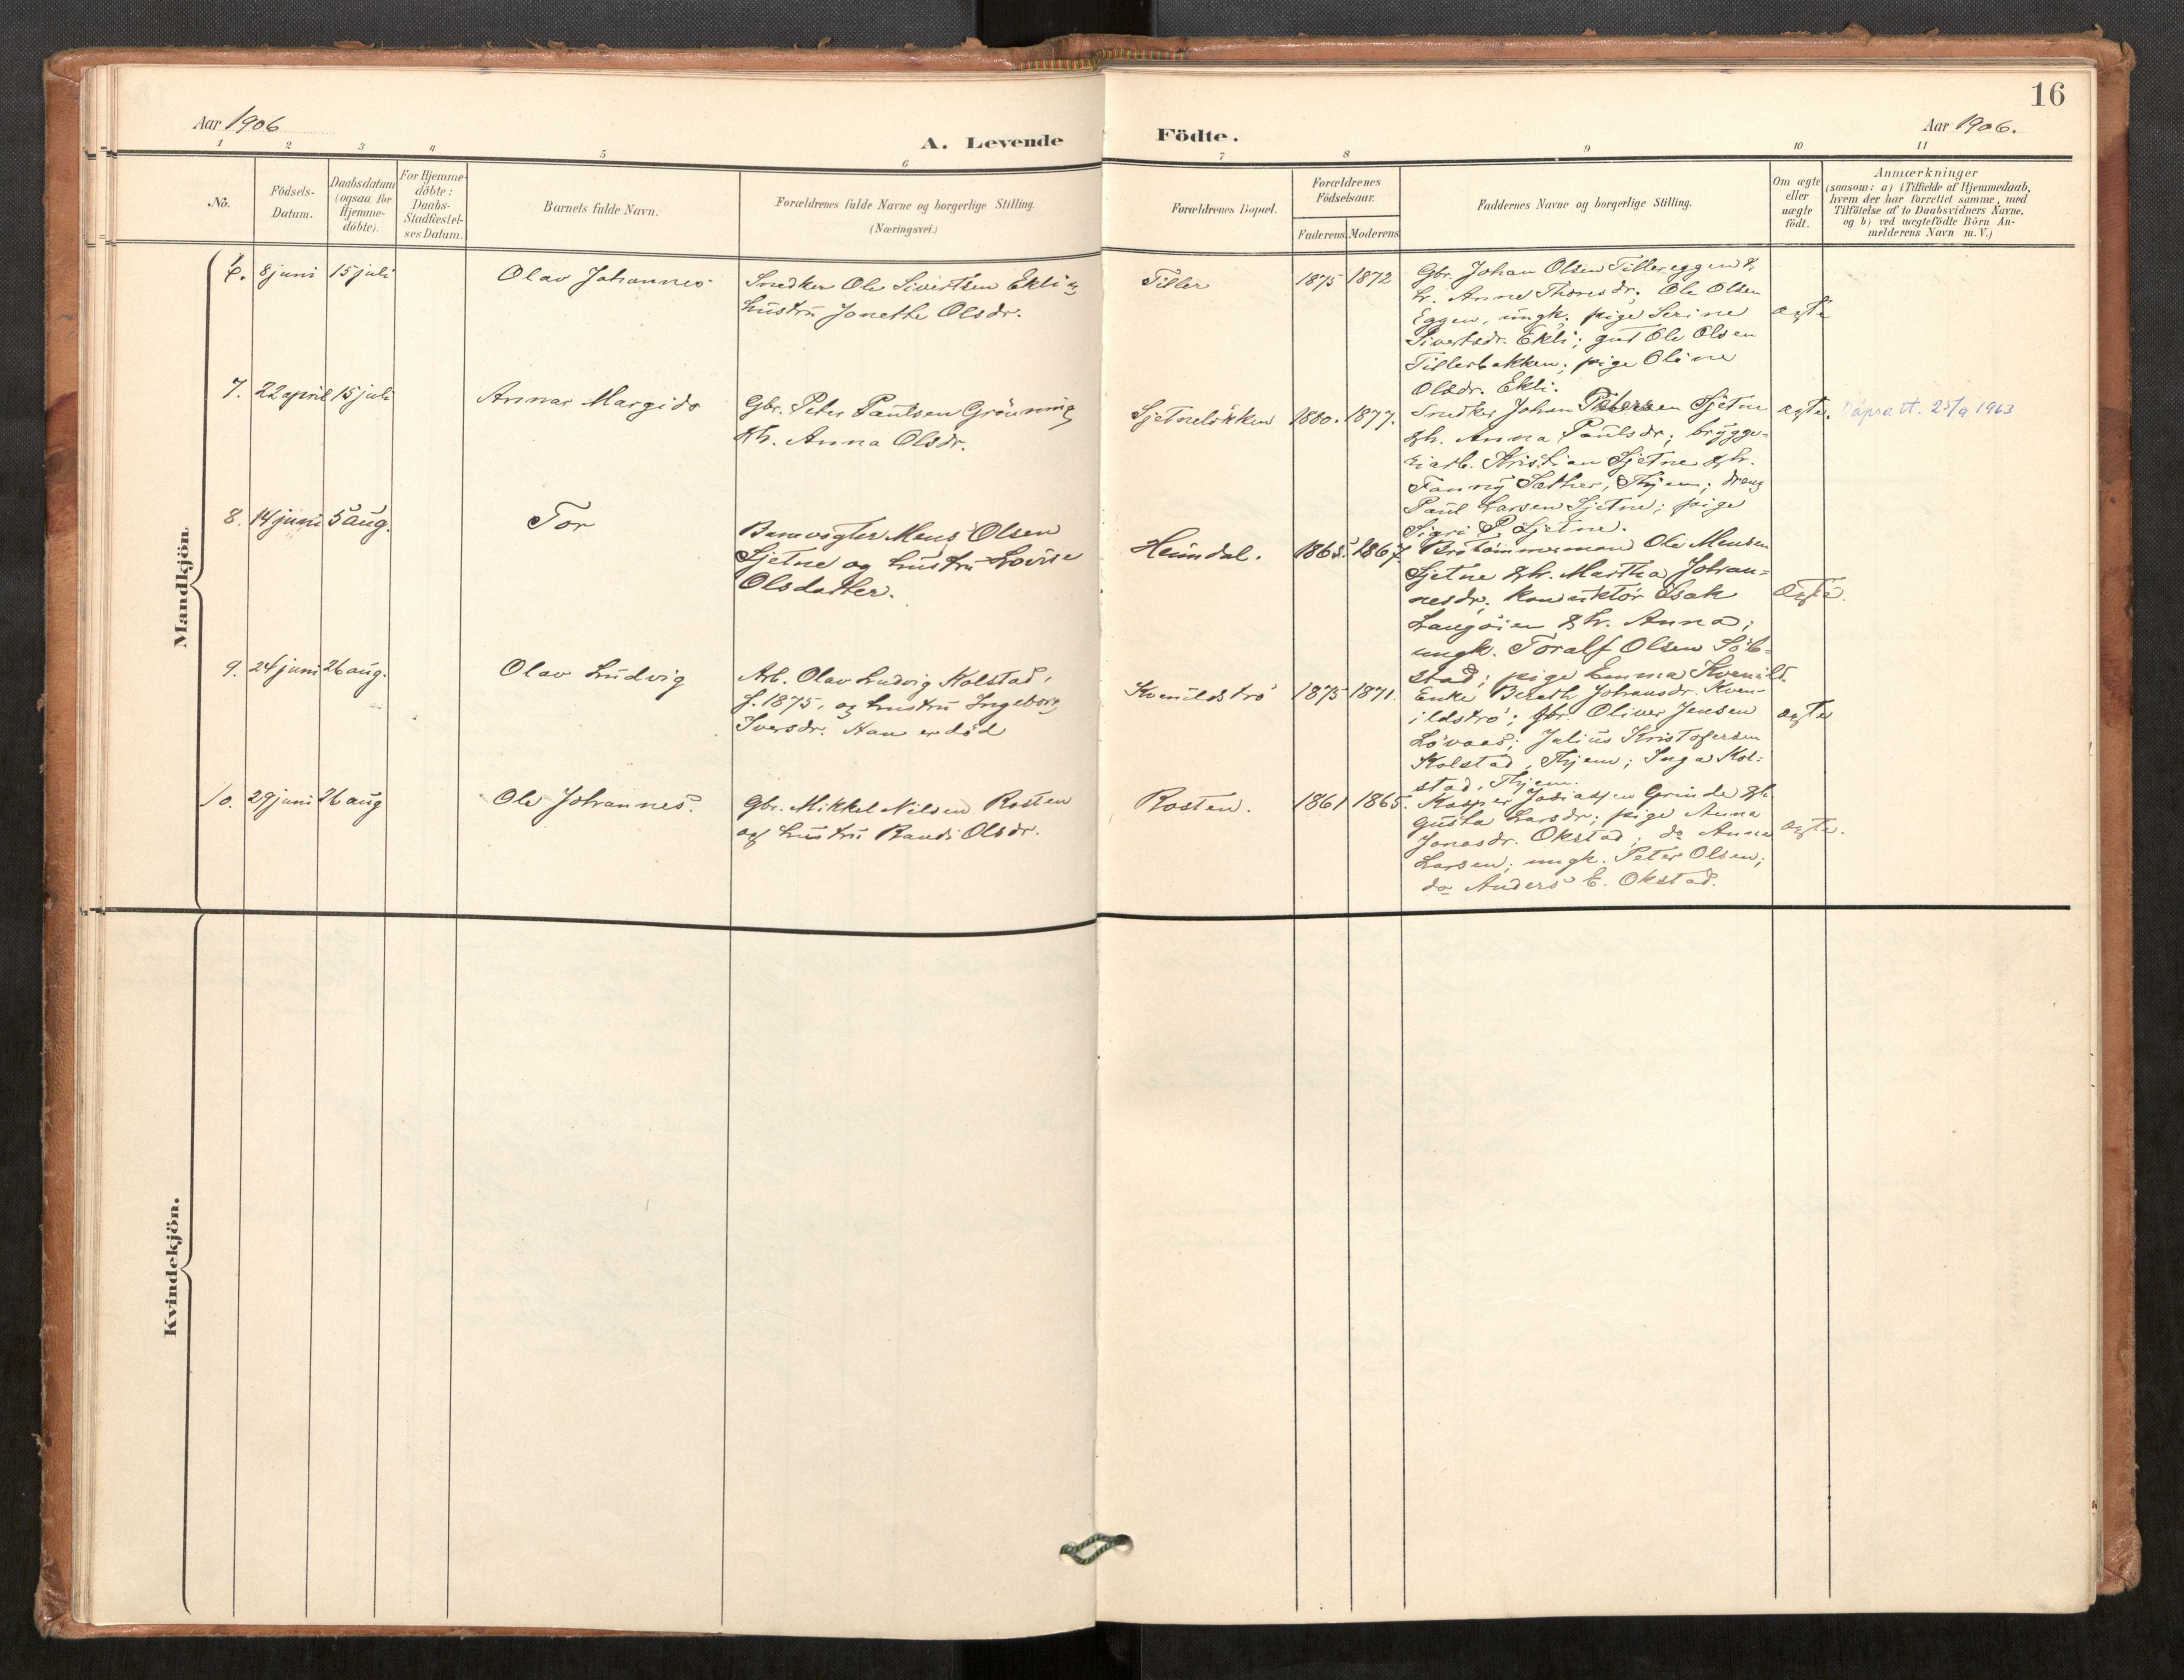 16
Aar 1906
A. Levende
Födte.
Aar 1906.
1 2 3 4 5 6 7 8 9 10 11
No.
Födsels-
Datum.
Daabsdatum
(ogsaa for
Hjemme-
döbte).
For Hjemme-
döbte:
Daabs-
Stadfæstel-
ses Datum.
Barnets fulde Navn.
Forældrenes fulde Navne og borgerlige Stilling.
(Næringsvei.)
Forældrenes Bopæl.
Forældrenes
Födselsaar.
Faderens Moderens
Faddernes Navne og borgerlige Stilling.
Om ægte
eller
uægte
födt.
Anmærkninger
(saasom: a) i Tilfælde af Hjemmedaab,
hvem der har forrettet samme, med
Tilföielse af to Daabsvidners Navne,
og b) ved uægtefödte Börn An-
melderens Navn m. V.)
Mandkjön.
6. 8 juni 15 juli
Olav Johannes
Snedker Ole Sivertsen Ekli og
hustru Jonette Olsdr.
Tiller
1875 1872
Gbr. Johan Olsen Tillereggen &
h. Anne Thoresdr.; Ole Olsen
Eggen, ungk. pige Serine
Sivertsdr. Ekli; gut Ole Olsen
Tillerbakken; pige Oline
Olsdr. Ekli.
ægte
7. 22 april 15 juli
Annar Margido
Gbr. Peter Paulsen Grönning
& h. Anna Olsdr.
Sjetneløkken
1880. 1877.
Snedker Johan Petersen Sjetne
& h. Anna Paulsdr; brygge-
riarb. Kristian Sjetne & h.
Fanny Sæther, Thjem; dreng
Paul Larsen Sjetne; pige
Sigri P. Sjetne.
ægte.
Dåpsatt. 25/9 1963
8. 14 juni 5 aug.
Tor
Banevogter Mens Olsen
Sjetne og hustru Lovise
Olsdatter.
Heimdal.
1865. 1867.
Brotömmermand Ole Mensen
Sjetne & h. Martha Johan-
nesdr; konduktör Isak
Langöien & h. Anna;
ungk. Toralf Olsen Söb-
stad; pige Emma Kvenild.
ægte.
9. 24 juni 26 aug.
Olav Ludvig
Arb. Olav Ludvig Kolstad,
f. 1875, og hustru Ingeborg
Iversdr. Han er död
Kvenildstrø
1875 1871.
Enke Bereth Johansdr. Kven-
ildströ; gbr. Oliver Jensen
Lövaas; Julius Kristofersen
Kolstad, Thjem; Inga Kol-
stad, Thjem.
ægte
10. 29 juni 26 aug
Ole Johannes.
Gbr. Mikkel Nilsen Rosten
og hustru Randi Olsdr.
Rosten.
1861 1865.
Kasper Josiassen Grinde & h.
Gusta Larsdr; pige Anna
Jonasdr. Okstad; do Anna
Larsen; ungk. Peter Olsen;
do Anders E. Okstad.
ægte.
Kvindekjön.